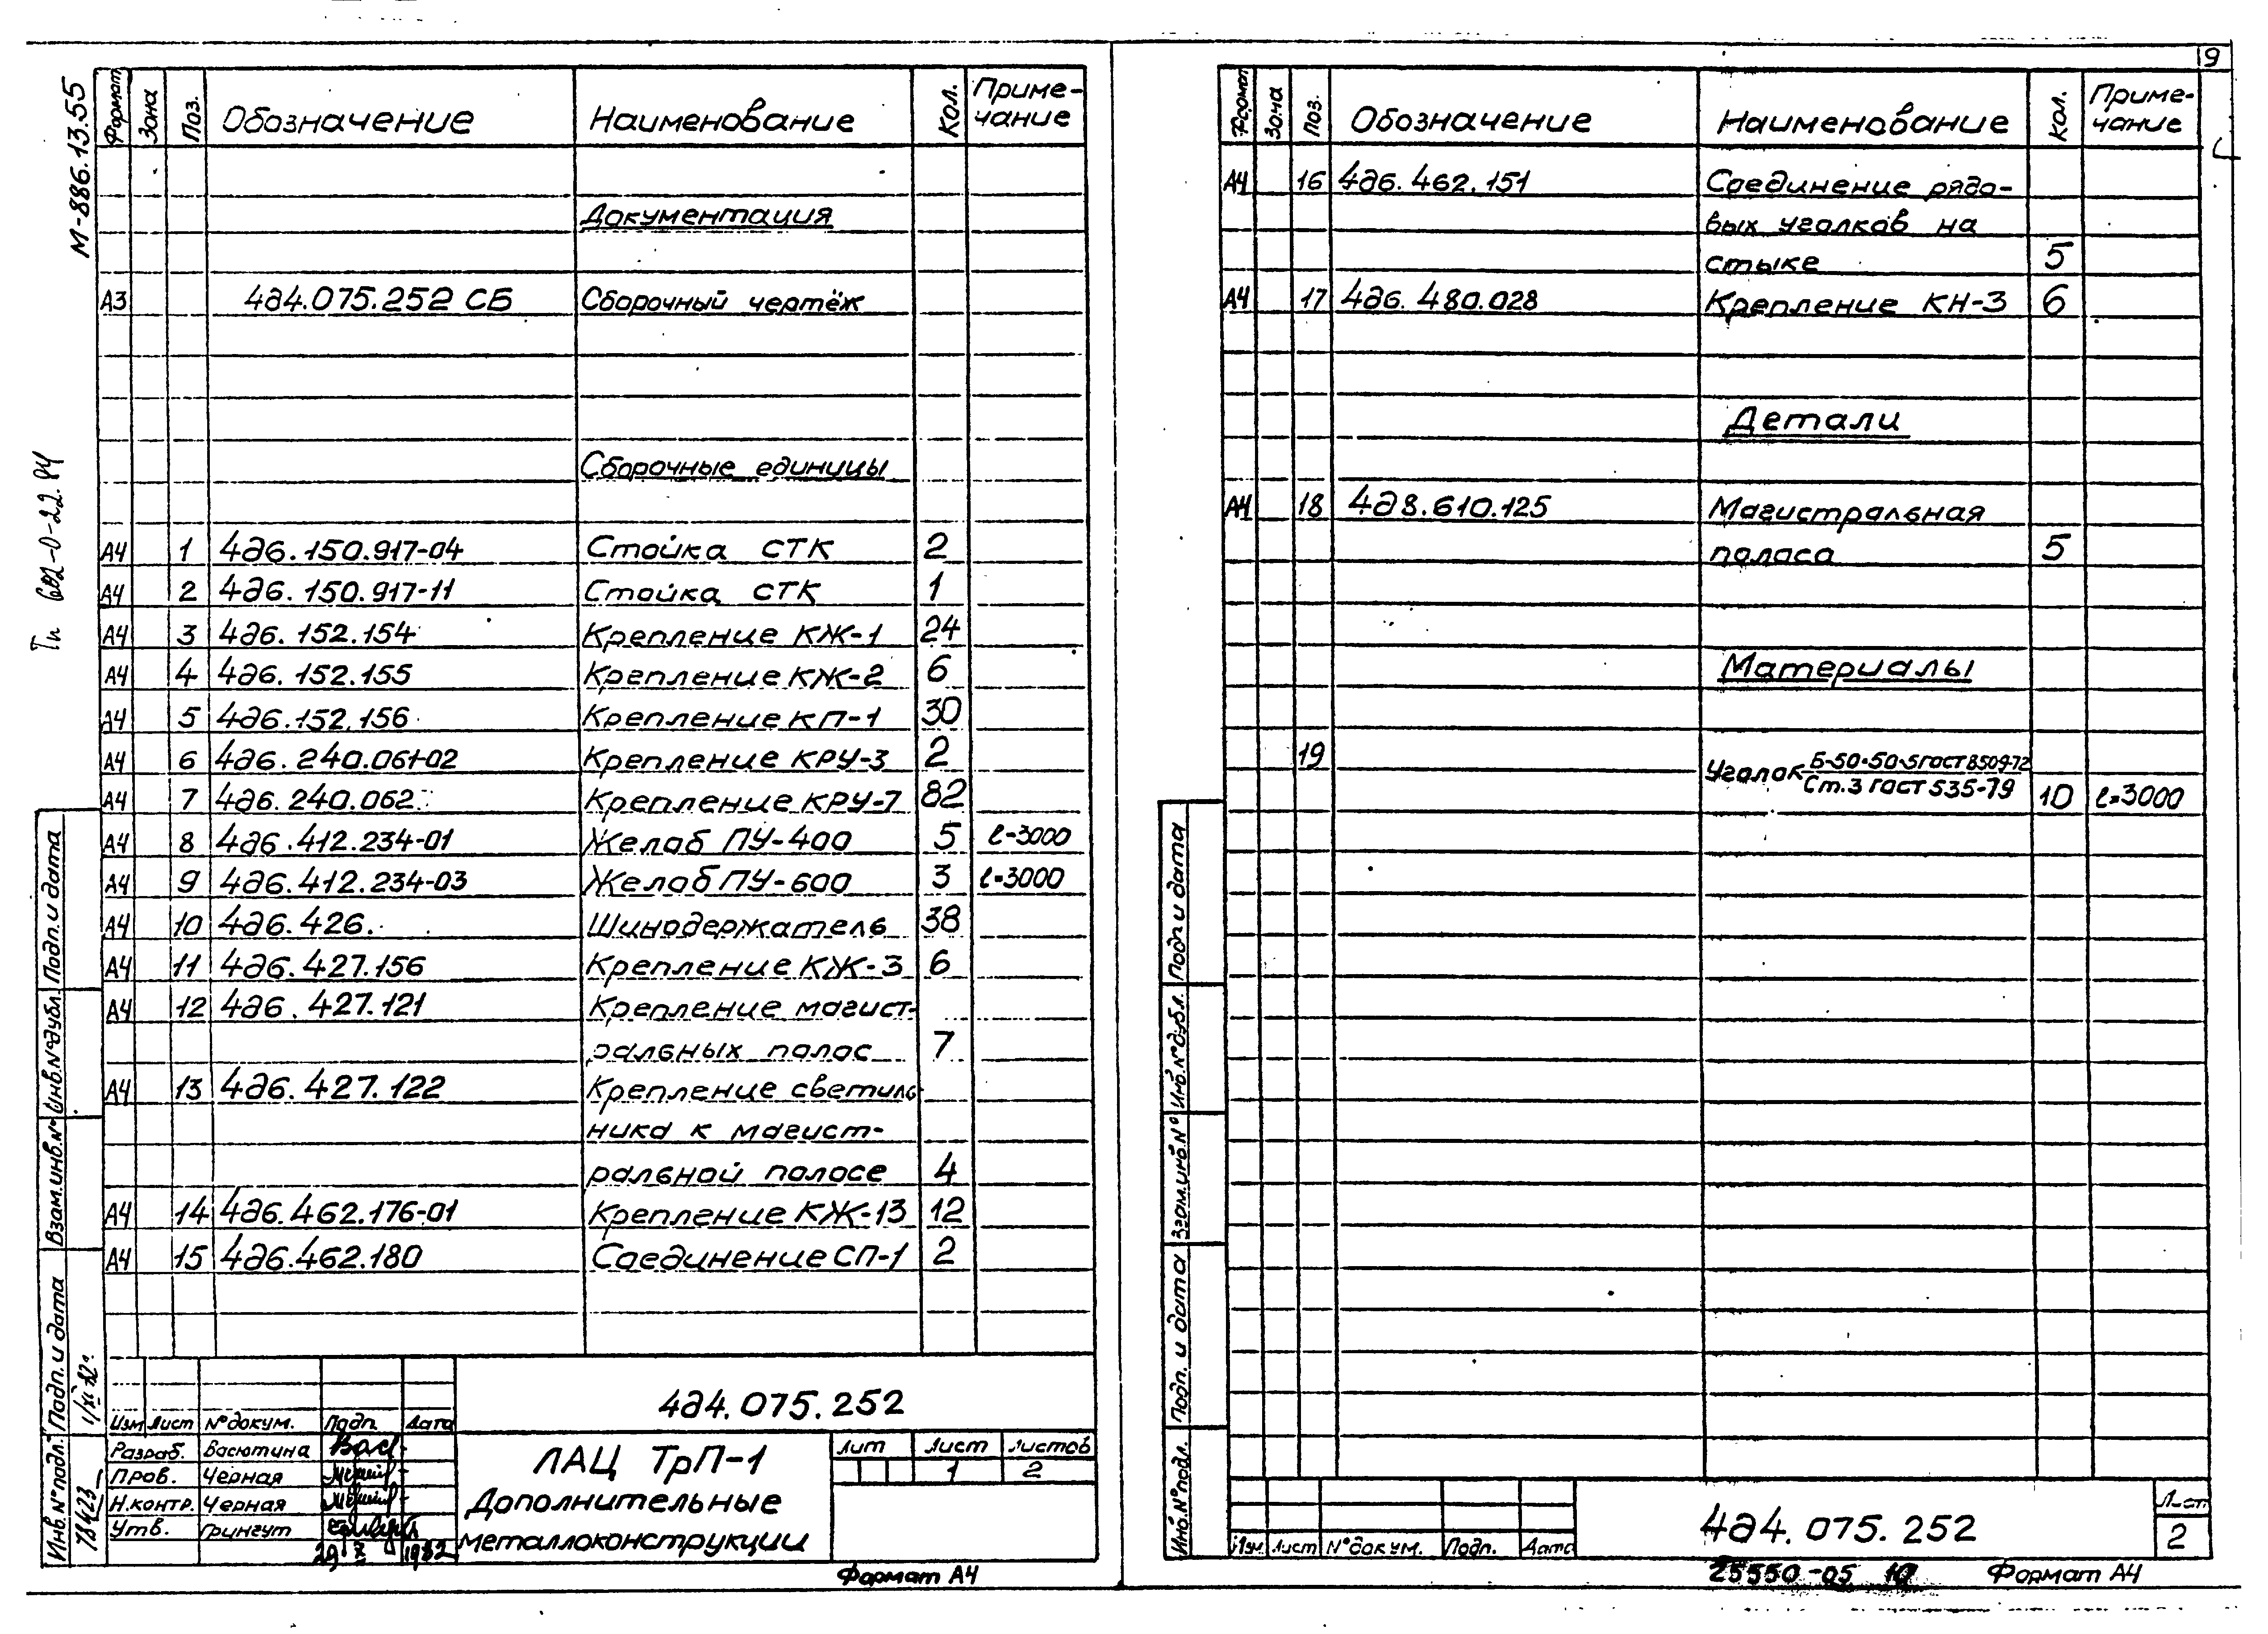 9
М-886.13.55
Формат Зона Поз. Обозначение Наименование Кол. Приме-
чание
Документация
А3 4д4.075.252 СБ Сборочный чертёж
Сборочные единицы
А4 1 4д6.150.917-04 Стойка СТК 2
А4 2 4д6.150.917-11 Стойка СТК 1
А4 3 4д6.152.154 Крепление КЖ-1 24
А4 4 4д6.152.155 Крепление КЖ-2 6
А4 5 4д6.152.156 Крепление КП-1 30
А4 6 4д6.240.061-02 Крепление КРУ-3 2
А4 7 4д6.240.062 Крепление КРУ-7 82
А4 8 4д6.412.234-01 Желоб ПУ-400 5 ℓ=3000
А4 9 4д6.412.234-03 Желоб ПУ-600 3 ℓ=3000
А4 10 4д6.426. Шинодержатель 38
А4 11 4д6.427.156 Крепление КЖ-3 6
А4 12 4д6.427.121 Крепление магист-
ральных полос 7
А4 13 4д6.427.122 Крепление светиль-
ника к магист-
ральной полосе 4
А4 14 4д6.462.176-01 Крепление КЖ-13 12
А4 15 4д6.462.180 Соединение СП-1 2
Тп 602-0-22.84
Подп. и дата
Инв.№дубл.
Взам.инв.№
Подп. и дата
Инв.№подл.
78423
4д4.075.252
Изм Лист №докум. Подп. Дата
Разраб. Васютина
Пров. Черная
Н.контр. Черная
Утв. Грингут
29 X 1982
ЛАЦ ТрП-1
Дополнительные
металлоконструкции
Лит Лист Листов
1 2
Формат А4
Формат Зона Поз. Обозначение Наименование Кол. Приме-
чание
А4 16 4д6.462.151 Соединение рядо-
вых уголков на
стыке 5
А4 17 4д6.480.028 Крепление КН-3 6
Детали
А4 18 4д8.610.125 Магистральная
полоса 5
Материалы
19 Уголок Б-50·50·5 ГОСТ 8509-72
Ст.3 ГОСТ 535-79 10 ℓ=3000
Подп и дата
Инв.№дубл.
Взам.инв.№
Подп. и дата
Инв.№подл.
Изм. Лист №докум. Подп. Дата
4д4.075.252
Лист
2
25550-05 10 Формат А4